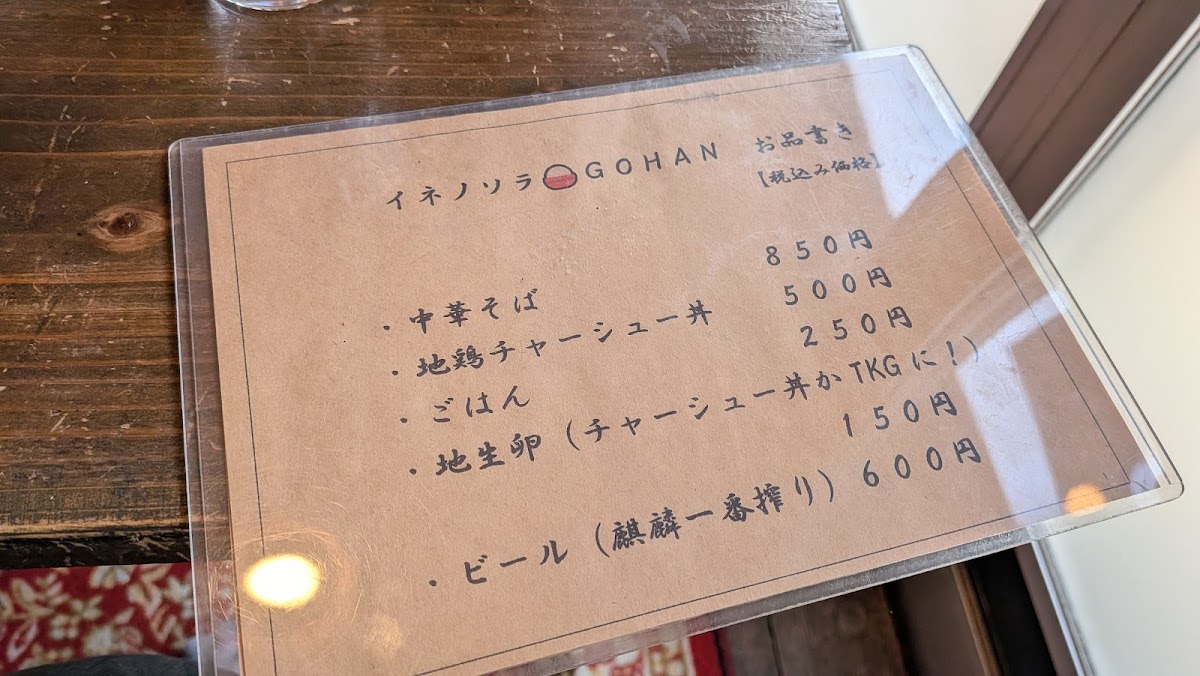 イネノソラ GOHAN お品書き
【税込み価格】
・中華そば 850円
・地鶏チャーシュー丼 500円
・ごはん 250円
・地生卵(チャーシュー丼かTKGに!)
150円
・ビール(麒麟一番搾り)600円